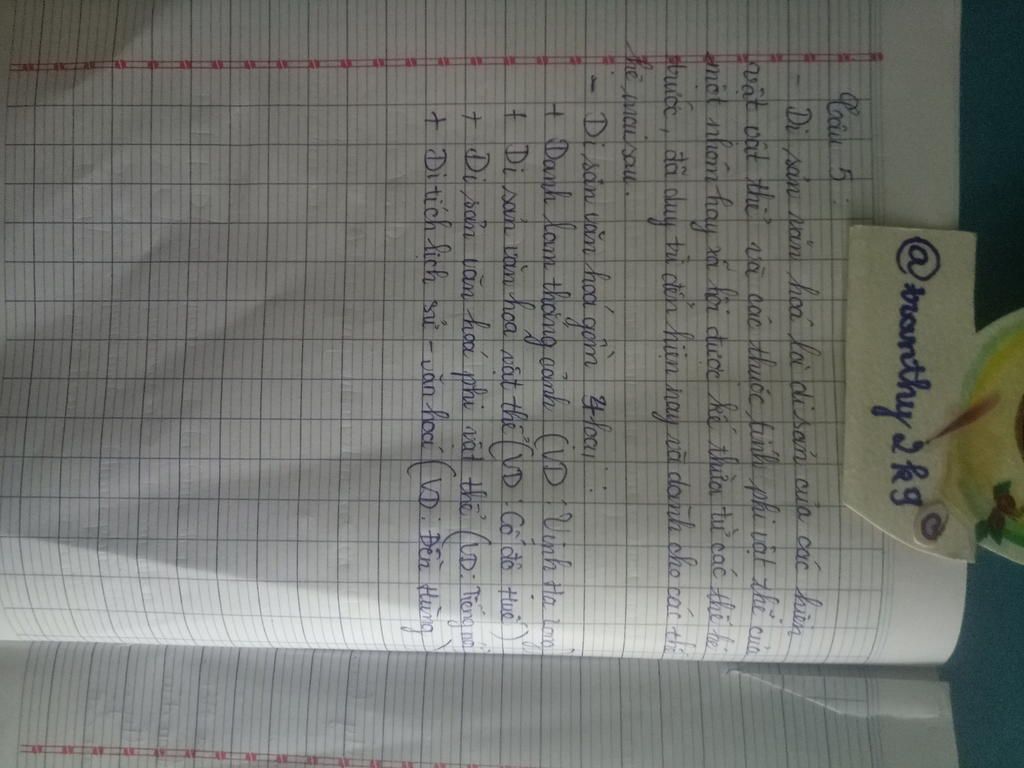 Câu 5:
- Di sản văn hoá là di sản của các hiện
vật vật thể và các thuộc tính phi vật thể của
một nhóm hay xã hội được kế thừa từ các thế hệ
trước, đã duy trì đến hiện nay và dành cho các thế
hệ mai sau.
- Di sản văn hoá gồm 4 loại:
+ Danh lam thắng cảnh (VD: Vịnh Hạ Long)
+ Di sản văn hoá vật thể (VD: Cố đô Huế)
+ Di sản văn hoá phi vật thể (VD: Tiếng
+ Di tích lịch sử - văn hoá (VD: Đền Hùng)
@tranthy2kg